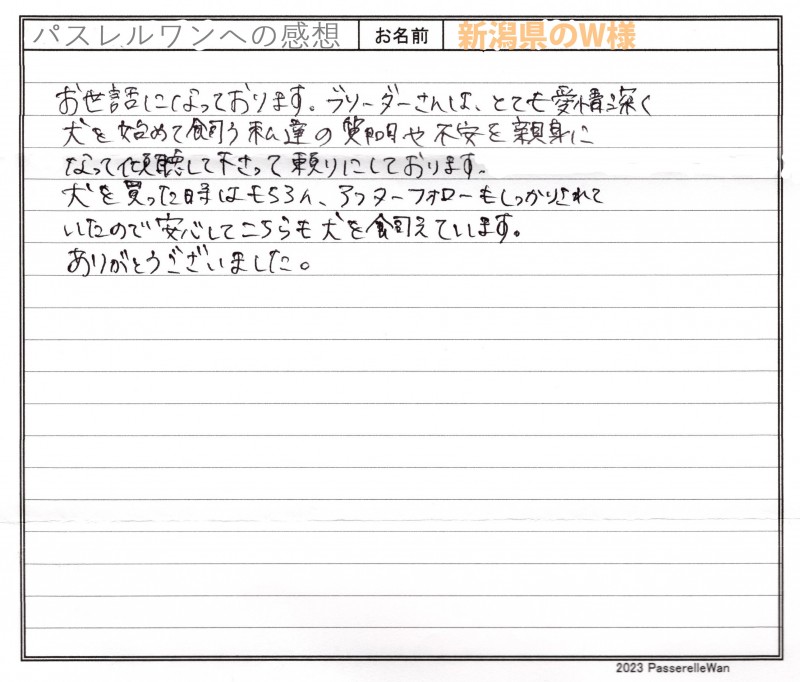 パスレルワンへの感想 お名前 新潟県のW様
お世話になっております。ブリーダーさんは、とても愛情深く
犬を始めて飼う私達の質問や不安を親身に
なって傾聴して下さって頼りにしております。
犬を買った時はもちろん、アフターフォローもしっかりされて
いたので安心してこちらも犬を飼えています。
ありがとうございました。
2023 PasserelleWan